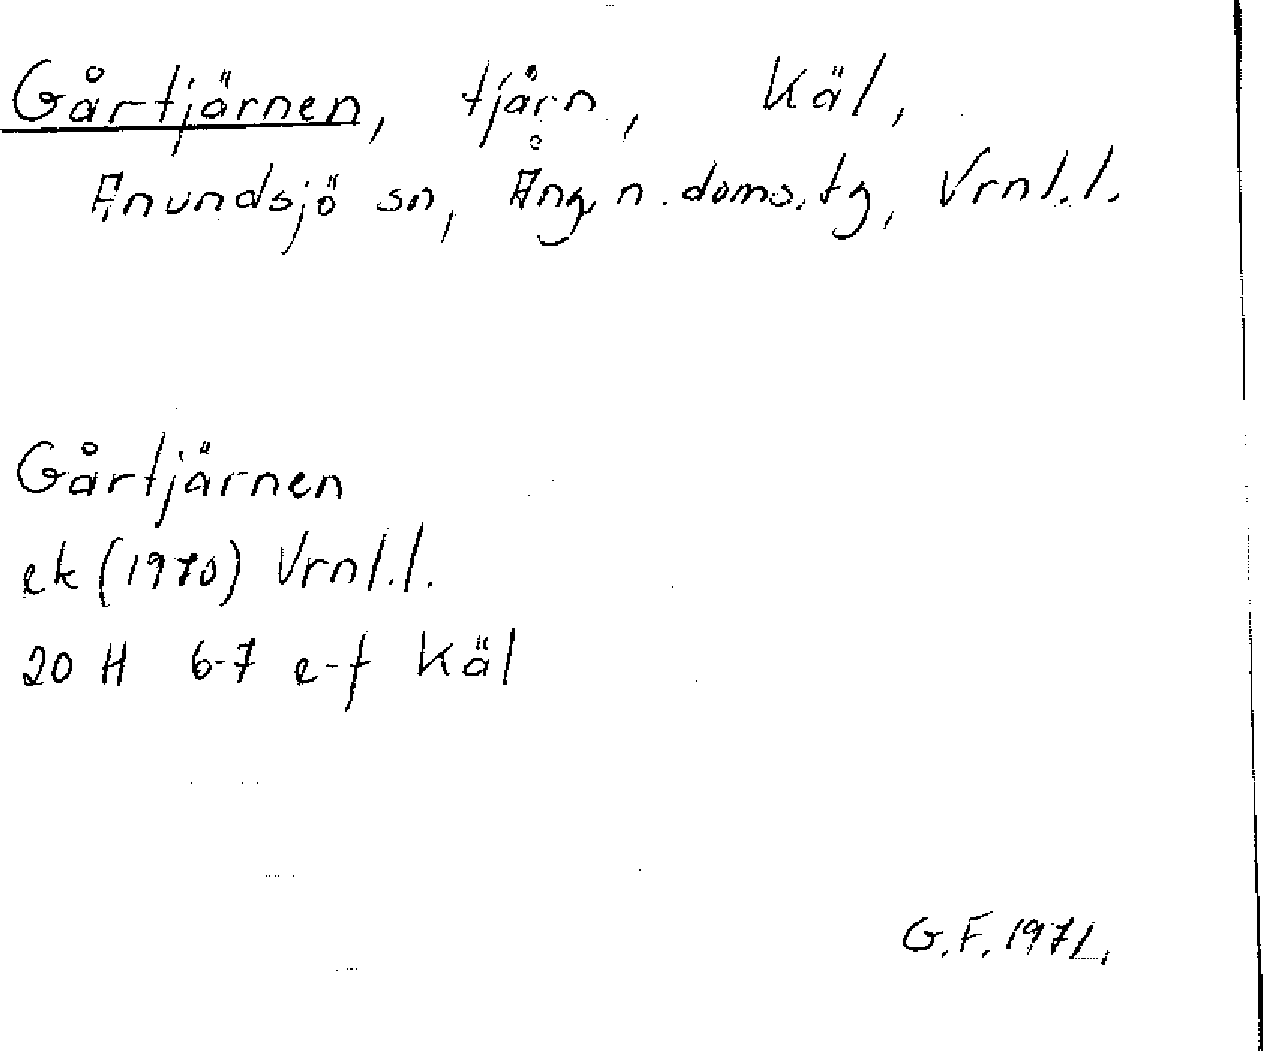 Gårtjärnen, tjärn, Käl,
Anundsjö sn, Ång. n. doms. tg, Vrnl.l.
Gårtjärnen
ek (1970) Vrnl.l.
20 H 6-7 e-f Käl
G.F. 1971.